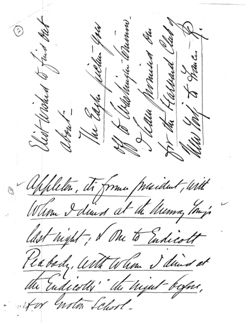 Eliot wished to find out
about—
The Eagle picture goes
off to Washington tomorrow.
I have promised one
for the Harvard Club
New York to Francis P.
Appleton, its former president, with
whom I dined at the Murray Youngs
last night; & one to Endicott
Peabody, with whom I dined at
the Endicotts' the night before,
for Groton School.—